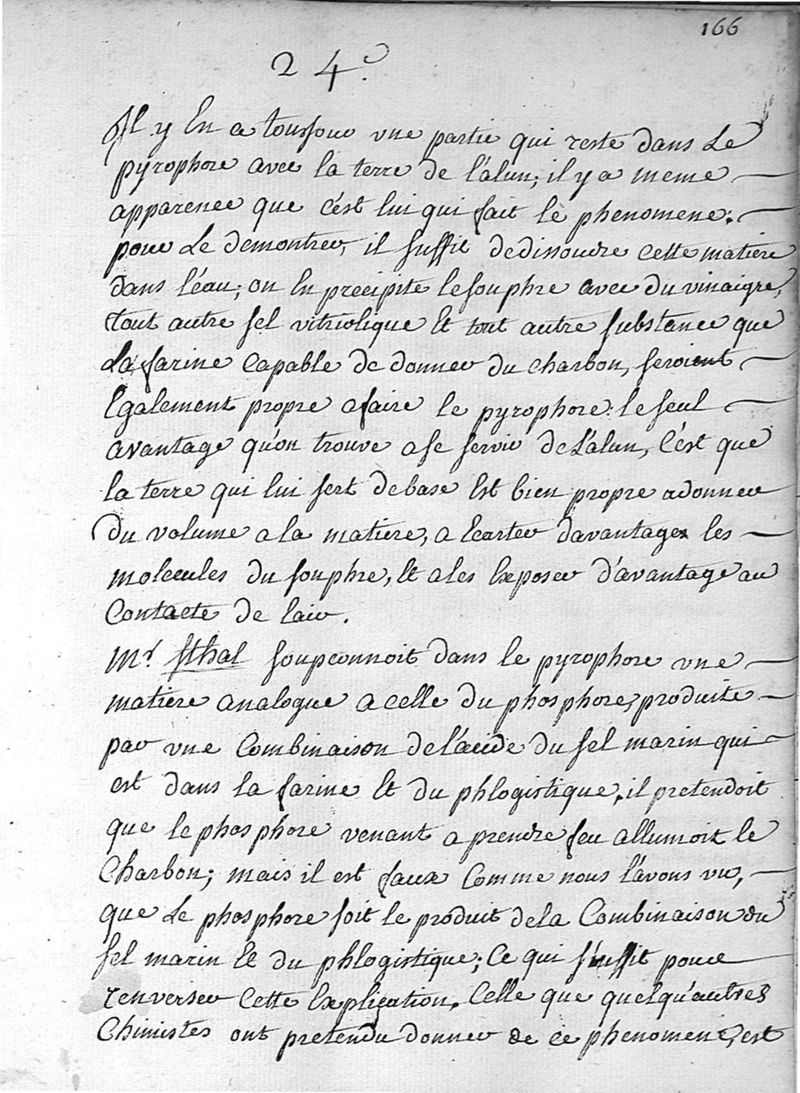 166
24e.
Il y En a toujour vne partie qui reste dans Le
pyrophore avec la terre de l'alun; il y a meme
apparence que c'est lui qui fait le phenomene.
pour Le demontrer, il suffit de dissoudre cette matiere
dans l'eau; on En precipite le souphre avec du vinaigre,
tout autre sel vitriolique Et tout autre substance que
La farine capable de donner du charbon, seroient
Egalement propre a faire le pyrophore: le seul
avantage qu'on trouve a se servir de L'alun, C'est que
la terre qui lui sert de base Est bien propre a donner
Du volume a la matiere, a Ecarter davantage les
molecules du souphre, Et a les Exposer d'avantage au
Contacte de lair.
Mr. sthal soupconnoit dans le pyrophore vne
matiere analogue a celle du phosphore, produite
par vne Combinaison de l'acide du sel marin qui
est dans la farine Et du phlogistique, il pretendoit
que le phosphore venant a prendre feu allumoit le
Charbon; mais il est faux Comme nous l'avons vu,
que Le phosphore soit le produit de la Combinaison du
sel marin Et du phlogistique; Ce qui suffit pour
renverser Cette Explication. Celle que quelqu'autres
Chimistes ont pretendu donner de ce phenomene, est